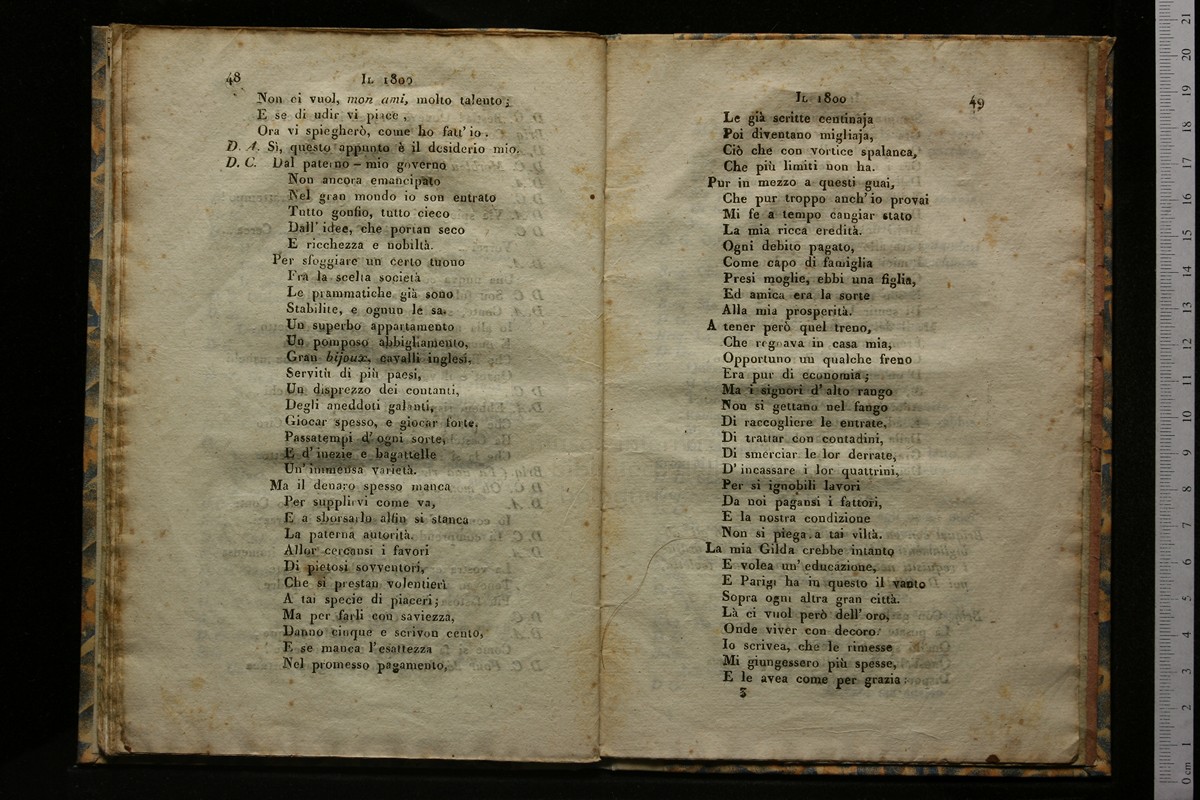 48 IL 1800
Non ci vuol, mon ami, molto talento;
E se di udir vi piace,
Ora vi spiegherò, come ho fatt' io.
D. A. Sì, questo appunto è il desiderio mio.
D. C. Dal paterno - mio governo
Non ancora emancipato
Nel gran mondo io son entrato
Tutto gonfio, tutto cieco
Dall' idee, che portan seco
E ricchezza e nobiltà.
Per sfoggiare un certo tuono
Fra la scelta società
Le prammatiche già sono
Stabilite, e ognun le sa.
Un superbo appartamento
Un pomposo abbigliamento,
Gran bijoux, cavalli inglesi,
Servitù di più paesi,
Un disprezzo dei contanti,
Degli aneddoti galanti,
Giocar spesso, e giocar forte,
Passatempi d' ogni sorte,
E d' inezie e bagattelle
Un' immensa varietà.
Ma il denaro spesso manca
Per supplirvi come va,
E a sborsarlo alfin si stanca
La paterna autorità.
Allor cercansi i favori
Di pietosi sovventori,
Che si prestan volentieri
A tai specie di piaceri;
Ma per farli con saviezza,
Danno cinque e scrivon cento,
E se manca l' esattezza
Nel promesso pagamento,
IL 1800 49
Le già scritte centinaja
Poi diventano migliaja,
Ciò che con vortice spalanca,
Che più limiti non ha.
Pur in mezzo a questi guai,
Che pur troppo anch' io provai
Mi fe a tempo cangiar stato
La mia ricca eredità.
Ogni debito pagato,
Come capo di famiglia
Presi moglie, ebbi una figlia,
Ed amica era la sorte
Alla mia prosperità.
A tener però quel treno,
Che regnava in casa mia,
Opportuno un qualche freno
Era pur di economia;
Ma i signori d' alto rango
Non si gettano nel fango
Di raccogliere le entrate,
Di trattar con contadini,
Di smerciar le lor derrate,
D' incassare i lor quattrini,
Per sì ignobili lavori
Da noi pagansi i fattori,
E la nostra condizione
Non si piega a tai viltà.
La mia Gilda crebbe intanto
E volea un' educazione,
E Parigi ha in questo il vanto
Sopra ogni altra gran città.
Là ci vuol però dell' oro,
Onde viver con decoro:
Io scrivea, che le rimesse
Mi giungessero più spesse,
E le avea come per grazia:
3